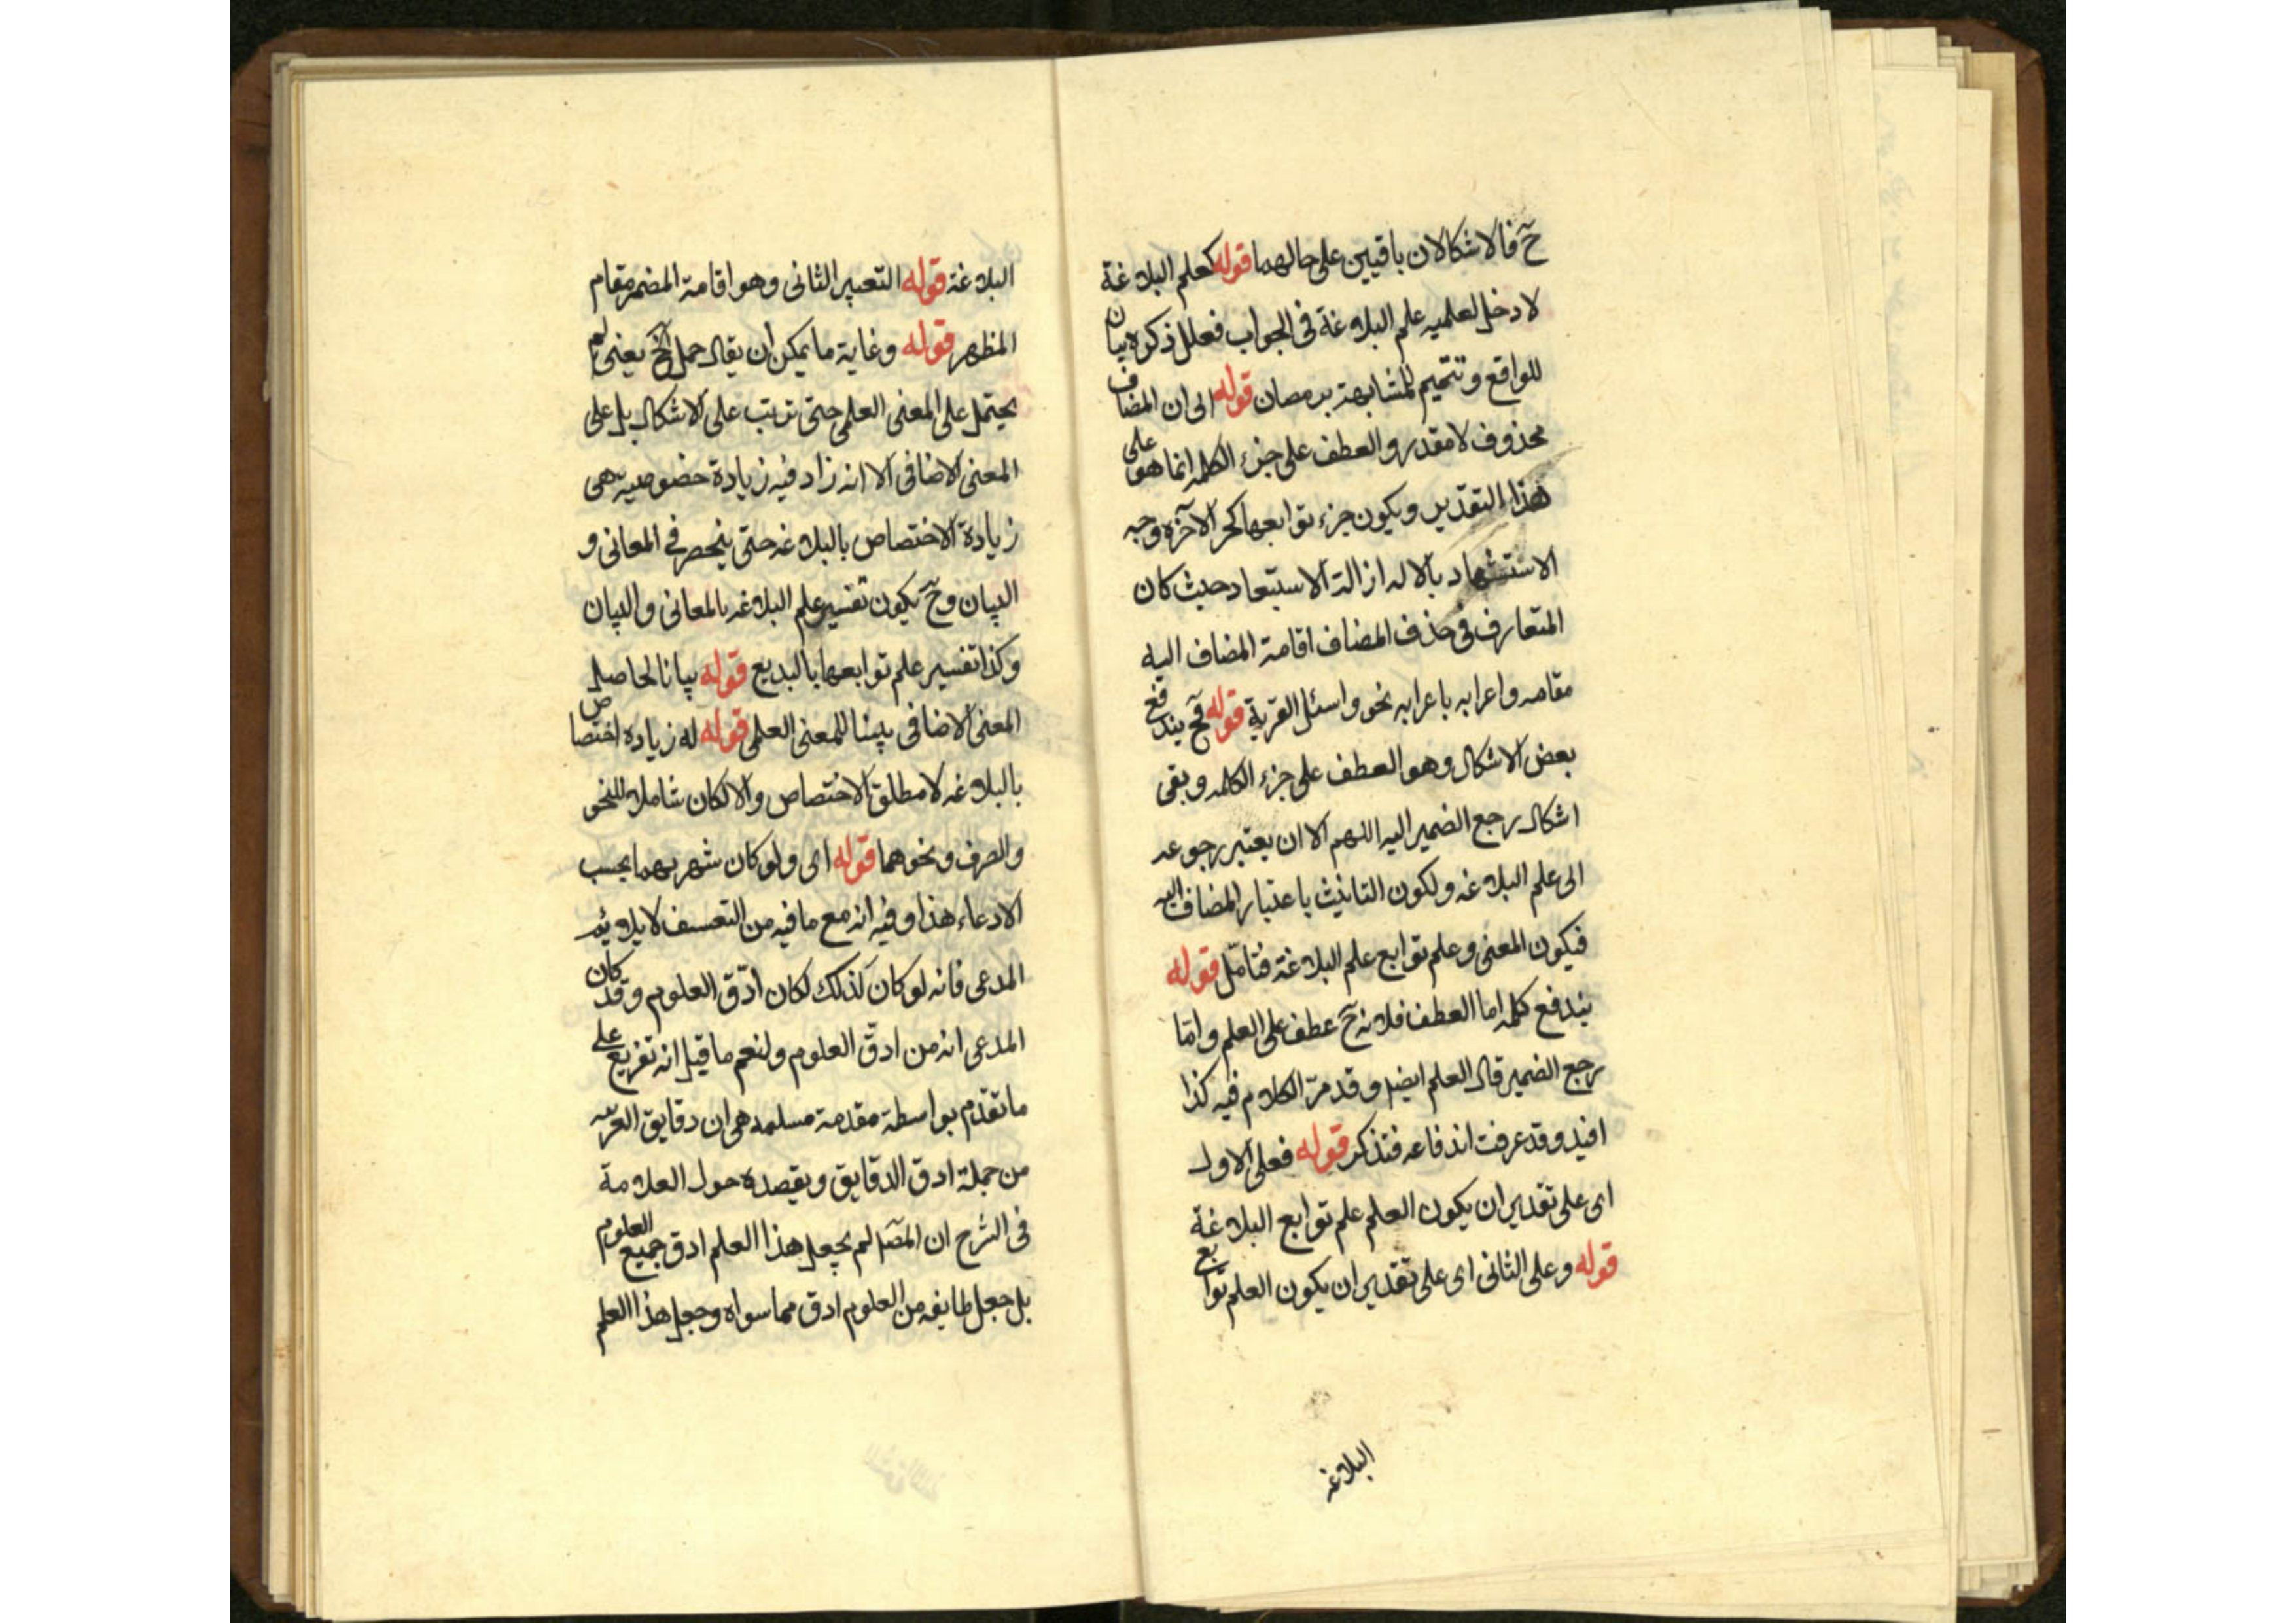 ح فالاشكالان باقيين على حالهما قوله كعلم البلاغة
لا دخل لعلميه علم البلاغة فى الجواب فعلل ذكره بيان
للواقع وتتميم للمشابهة برمصان قوله الى ان المضاف
محذوف لا مقدر والعطف على جزء الكلمه انما هو على
هذا التقدير ويكون جزء توابعها كجر الآخرة وجه
الاستشهاد بالاله ازالة الاستبعاد حيث كان
المتعارف فى حذف المضاف اقامة المضاف اليه
مقامه واعرابه باعرابه نحو واسئل القرية قوله فح يندفع
بعض الاشكال وهو العطف على جزء الكلمه وبقى
اشكال رجع الضمير اليه اللهم الا ان يعتبر رجوعه
الى علم البلاغه ولكون التانيث باعتبار المضاف اليه
فيكون المعنى وعلم توابع علم البلاغة فتامل قوله
يندفع كلمه اما العطف فلانه ح عطف على العلم واما
رجع الضمير قال العلم ايضا وقد مر الكلام فيه كذا
افيد وقد عرفت اندفاعه فتذكر قوله فعلى الاول
اى على تقدير ان يكون العلم علم توابع البلاغة
قوله وعلى الثانى اى على تقدير ان يكون العلم توابع
البلاغه
البلاغة قوله التعبير الثانى وهو اقامة المضمر مقام
المظهر قوله وغاية ما يمكن ان يقال حمل الخ يعنى لم
يحتمل على المعنى العلمى حتى ترتب على الاشكال بل على
المعنى الاضافى الا انه زاد فيه زيادة خصوصيه هى
زيادة الاختصاص بالبلاغه حتى ينحصر فى المعانى و
البيان وح يكون تفسير علم البلاغه بالمعانى والبيان
وكذا تفسير علم توابعها بالبديع قوله بيانا لحاصل
المعنى الاضافى بينا للمعنى العلمى قوله له زياده اختصاص
بالبلاغه لا مطلق الاختصاص والا لكان شاملا للنحو
والصرف ونحوهما قوله اى ولو كان شهر بهما بحسب
الادعاء هذا وفيه انه مع ما فيه من التعسف لا يلايم
المدعى فانه لو كان كذلك لكان ادق العلوم وقد كان
المدعى انه من ادق العلوم ولنعم ما قيل انه تفريع على
ما تقدم بواسطة مقدمة مسلمه هى ان دقايق العربيه
من جملة ادق الدقايق ويقصده حول العلامة
فى الشرح ان المص لم يجعل هذا العلم ادق جميع العلوم
بل جعل طايفه من العلوم ادق مما سواه وجعل هذا العلم